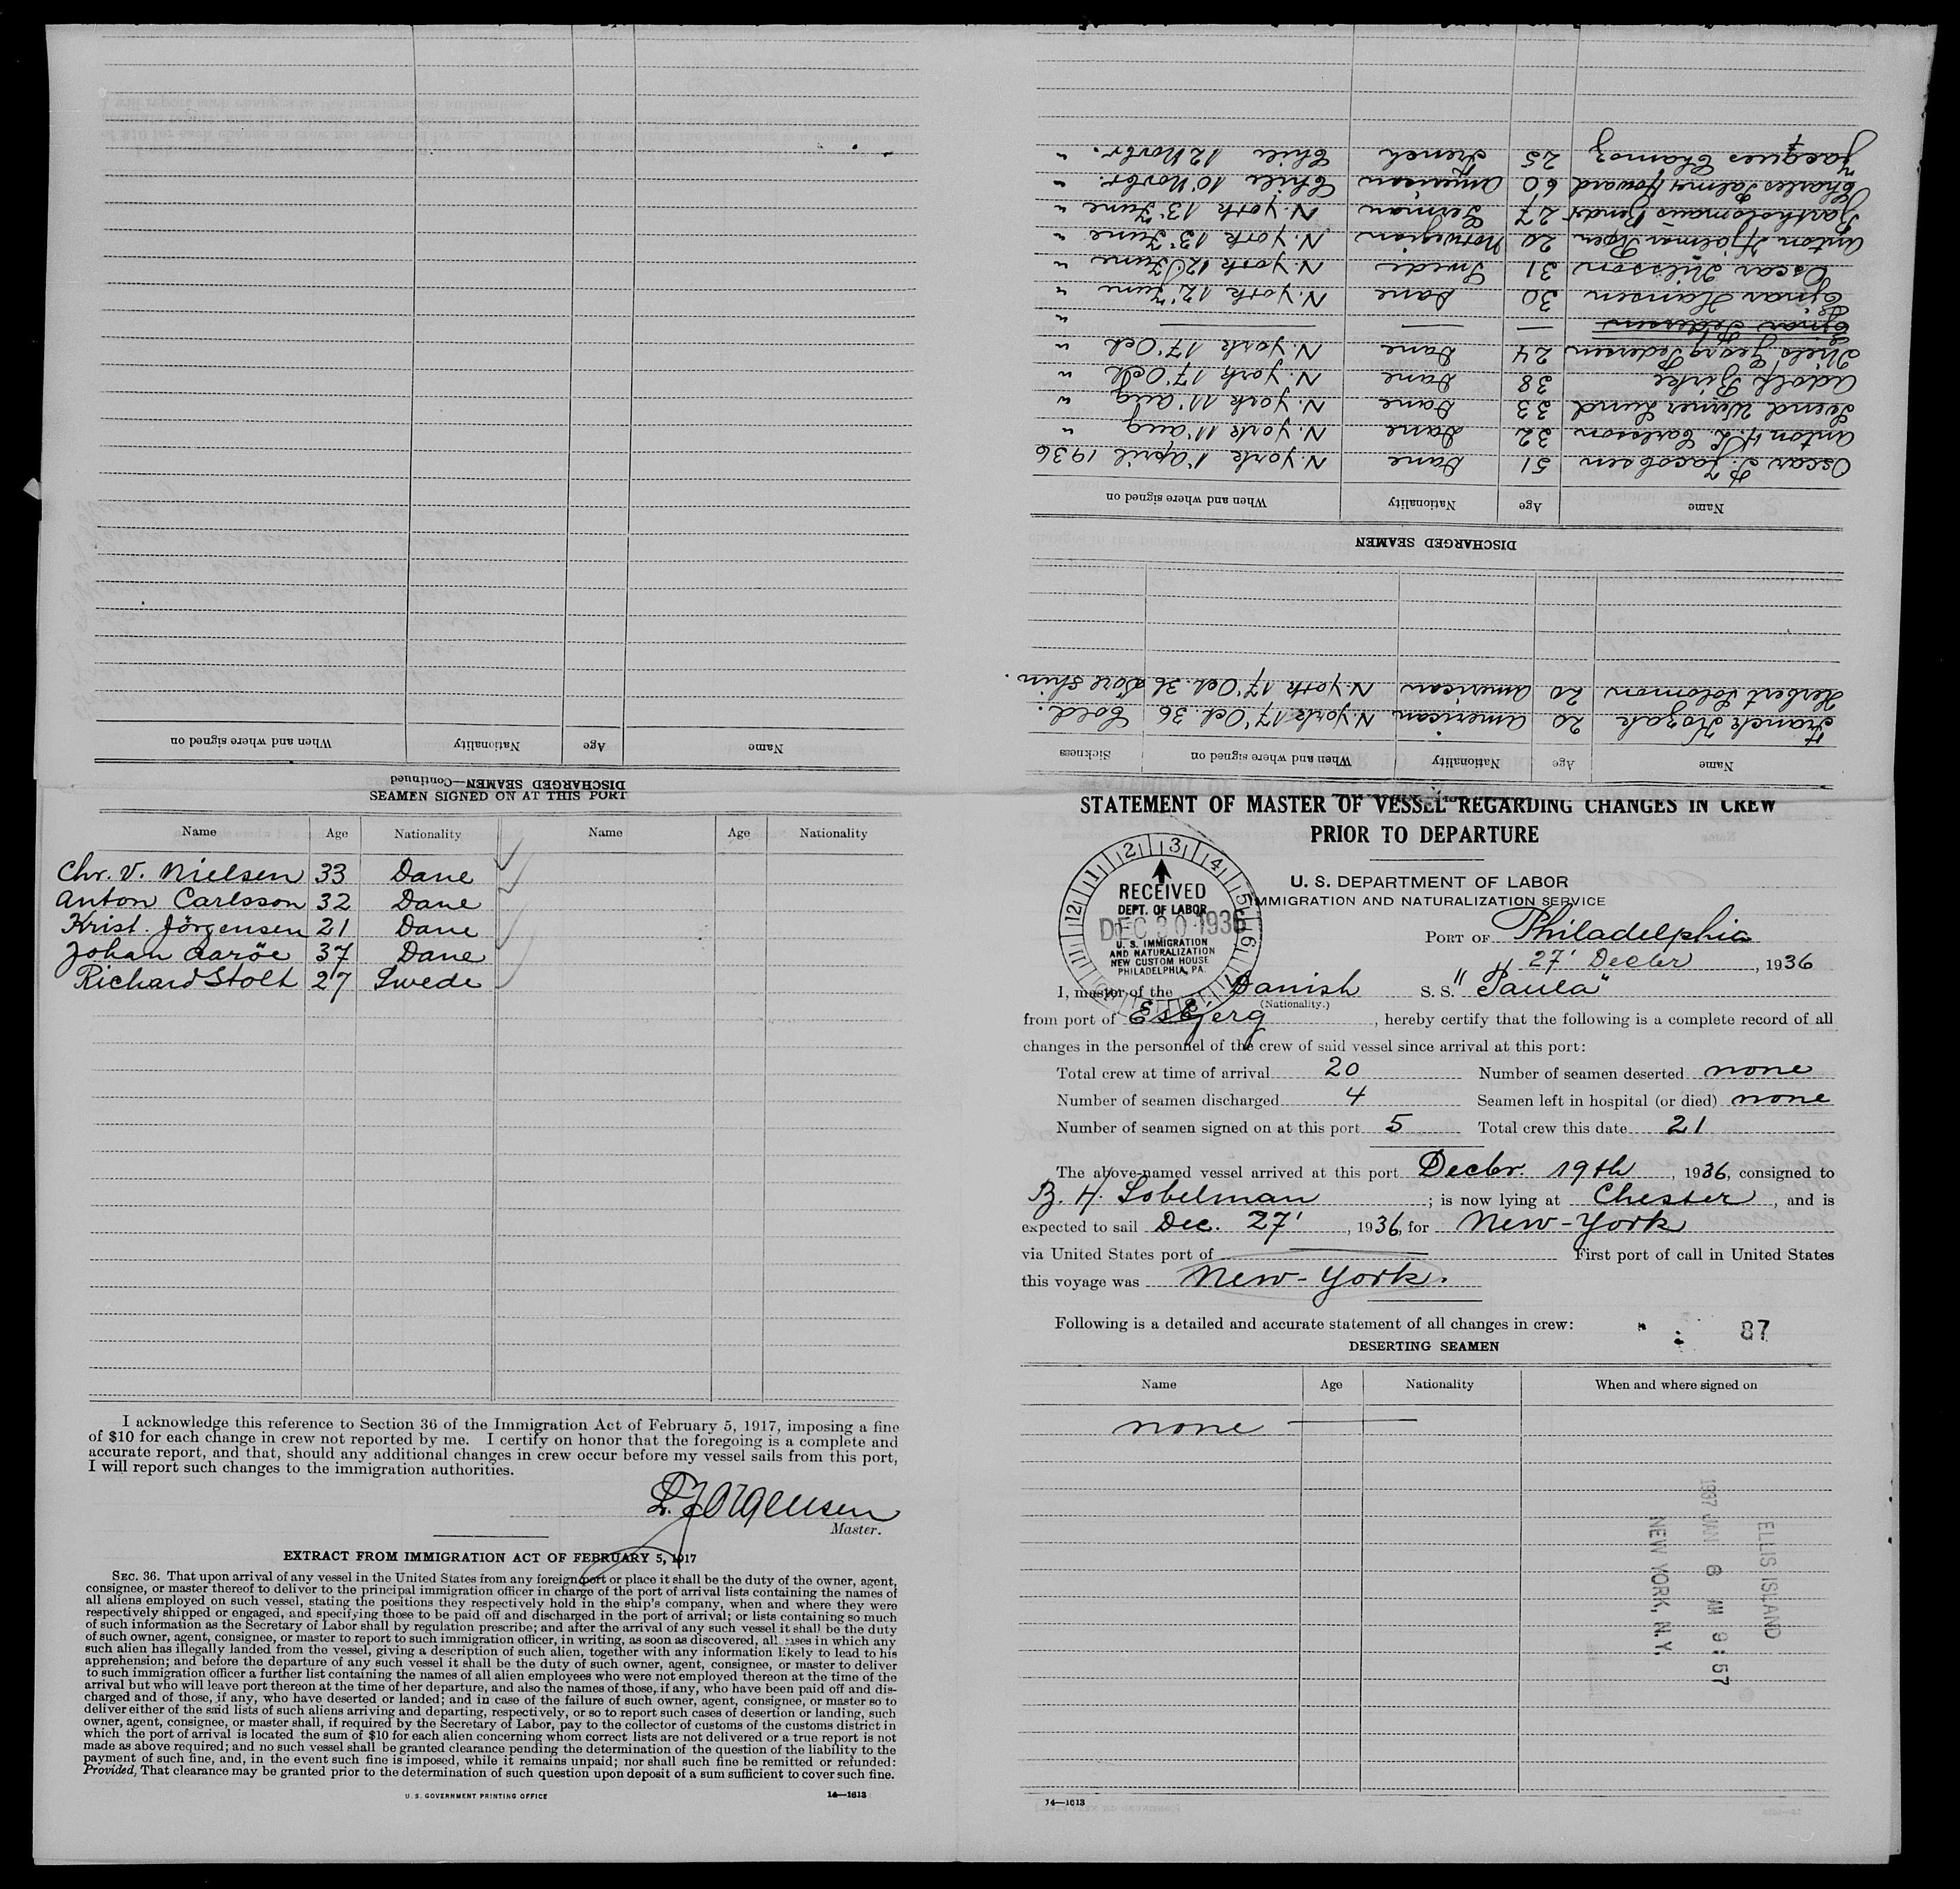 STATEMENT OF MASTER OF VESSEL REGARDING CHANGES IN CREW
PRIOR TO DEPARTURE
U. S. DEPARTMENT OF LABOR
IMMIGRATION AND NATURALIZATION SERVICE
RECEIVED
DEPT. OF LABOR
DEC 30 1936
U. S. IMMIGRATION
AND NATURALIZATION
NEW CUSTOM HOUSE
PHILADELPHIA, PA.
PORT OF Philadelphia
27' Decbr, 1936
I, master of the Danish S. S. "Paula"
(Nationality.)
from port of Esbjerg, hereby certify that the following is a complete record of all
changes in the personnel of the crew of said vessel since arrival at this port:
Total crew at time of arrival 20 Number of seamen deserted none
Number of seamen discharged 4 Seamen left in hospital (or died) none
Number of seamen signed on at this port 5 Total crew this date 21
The above-named vessel arrived at this port Decbr. 19th, 1936, consigned to
B. H. Sobelman; is now lying at Chester, and is
expected to sail Dec. 27', 1936, for New-York
via United States port of First port of call in United States
this voyage was New-York.
Following is a detailed and accurate statement of all changes in crew: 87
DESERTING SEAMEN
Name Age Nationality When and where signed on
none
ELLIS ISLAND
1937 JAN 8 AM 9:57
NEW YORK, N.Y.
14—1613
Name Age Nationality When and where signed on Sickness
Franck Kozak 20 American N.york 17' Oct. 36 Cold.
Herbert Solomon 20 American N.york 17' Oct. 36 Sore shin.
DISCHARGED SEAMEN
Name Age Nationality When and where signed on
Oscar P. Jacobsen 51 Dane N.york 1' april 1936
Anton H. L. Carlsson 32 Dane N.york 11' aug "
Svend Werner Lund 33 Dane N.york 11' aug "
Adolf Birke 38 Dane N.york 17' Oct "
Niels E. Georg Pedersen 24 Dane N.york 17' Oct "
Ejnar Pedersen — — — "
Ejnar Hansen 30 Dane N.york 12' June "
Oscar Nilsson 31 Swede N.york 12' June "
Anton Hjalmar Roen 20 Norwegian N.york 13' June "
Bartholomaus Bendst 27 German N.york 13' June "
Charles Palmer Howard 60 American Chile 10' Novbr. "
Jacques Chamoz 25 French Chile 12 Novbr. "
DISCHARGED SEAMEN—Continued
Name Age Nationality When and where signed on
SEAMEN SIGNED ON AT THIS PORT
Name Age Nationality Name Age Nationality
Chr. V. Nielsen 33 Dane
Anton Carlsson 32 Dane
Krist. Jörgensen 21 Dane
Johan Aaröe 37 Dane
Richard Stolt 27 Swede
I acknowledge this reference to Section 36 of the Immigration Act of February 5, 1917, imposing a fine
of $10 for each change in crew not reported by me. I certify on honor that the foregoing is a complete and
accurate report, and that, should any additional changes in crew occur before my vessel sails from this port,
I will report such changes to the immigration authorities.
L. Jörgensen
Master.
EXTRACT FROM IMMIGRATION ACT OF FEBRUARY 5, 1917
SEC. 36. That upon arrival of any vessel in the United States from any foreign port or place it shall be the duty of the owner, agent,
consignee, or master thereof to deliver to the principal immigration officer in charge of the port of arrival lists containing the names of
all aliens employed on such vessel, stating the positions they respectively hold in the ship's company, when and where they were
respectively shipped or engaged, and specifying those to be paid off and discharged in the port of arrival; or lists containing so much
of such information as the Secretary of Labor shall by regulation prescribe; and after the arrival of any such vessel it shall be the duty
of such owner, agent, consignee, or master to report to such immigration officer, in writing, as soon as discovered, all cases in which any
such alien has illegally landed from the vessel, giving a description of such alien, together with any information likely to lead to his
apprehension; and before the departure of any such vessel it shall be the duty of such owner, agent, consignee, or master to deliver
to such immigration officer a further list containing the names of all alien employees who were not employed thereon at the time of the
arrival but who will leave port thereon at the time of her departure, and also the names of those, if any, who have been paid off and dis-
charged and of those, if any, who have deserted or landed; and in case of the failure of such owner, agent, consignee, or master so to
deliver either of the said lists of such aliens arriving and departing, respectively, or so to report such cases of desertion or landing, such
owner, agent, consignee, or master shall, if required by the Secretary of Labor, pay to the collector of customs of the customs district in
which the port of arrival is located the sum of $10 for each alien concerning whom correct lists are not delivered or a true report is not
made as above required; and no such vessel shall be granted clearance pending the determination of the question of the liability to the
payment of such fine, and, in the event such fine is imposed, while it remains unpaid; nor shall such fine be remitted or refunded:
Provided, That clearance may be granted prior to the determination of such question upon deposit of a sum sufficient to cover such fine.
U. S. GOVERNMENT PRINTING OFFICE 14—1613